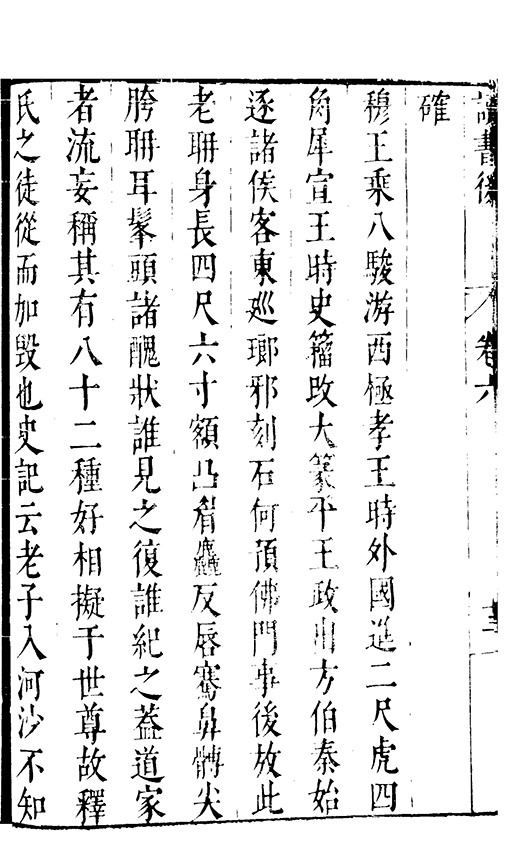 讀書後 卷六
確
穆王乘八駿游西極孝王時外國進二尺虎四
角犀宣王時史籀改大篆平王政出方伯秦始
逐諸侯客東廵瑯邪刻石何預佛門事後放此
老聃身長四尺六寸額凸眉麤反唇騫鼻髆尖
胯聃耳髼頭諸醜狀誰見之復誰紀之蓋道家
者流妄稱其有八十二種好相擬于世尊故釋
氏之徒從而加毀也史記云老子入河沙不知